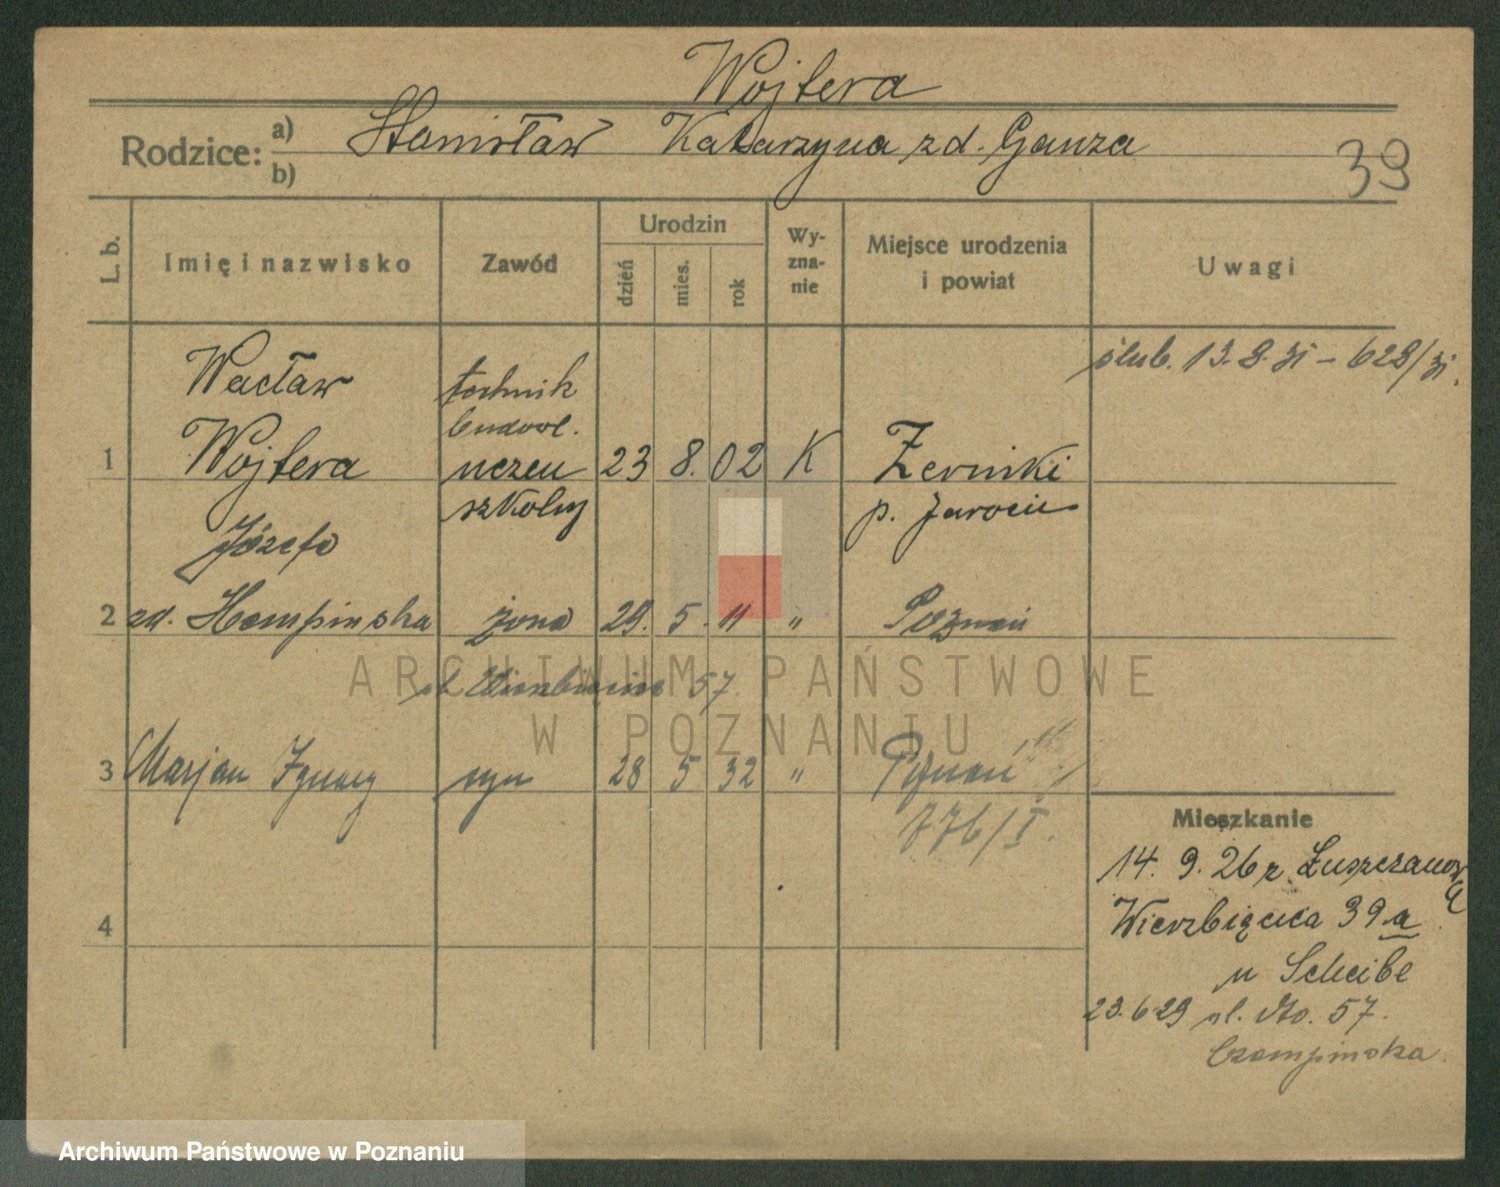 Wojtera
Rodzice: a) Stanisław Katarzyna zd. Ganza
b)
39
L. b.
Imię i nazwisko
Zawód
Urodzin
dzień
mies.
rok
Wy-
zna-
nie
Miejsce urodzenia
i powiat
Uwagi
ślub. 13.8.31 – 628/31.
1
Wacław
Wojtera
technik
budowl.
uczeń
szkolny
23 8. 02 K
Żerniki
p. Jarocin
Józefa
2 zd. żona 29. 5. 11 " Poznań
ul. Wierzbięcice 57.
3 Marjan Ignacy syn 28 5 32 " Poznań
776/I.
4
Mieszkanie
14. 9. 26 z
Wierzbięcice 39a
u Scheibe
23.6.29 ul. dto. 57.
Czempińska
ARCHIWUM PAŃSTWOWE
W POZNANIU
Archiwum Państwowe w Poznaniu